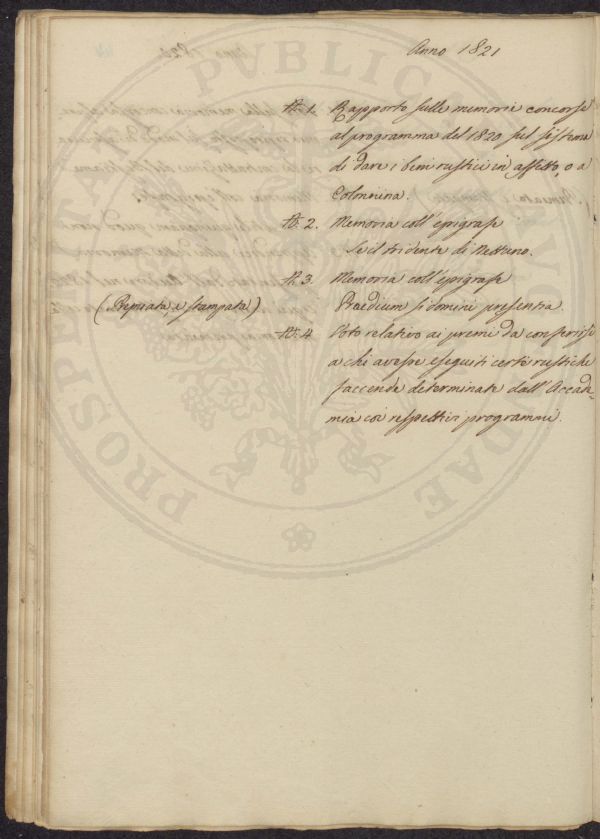 Anno 1821
N. 1. Rapporto sulle memorie concorse
al programma del 1820 sul sistema
di dare i beni rustici in affitto, o a
Colonnina.
N. 2. Memoria coll' epigrafe
Se il tridente di Nettuno.
N. 3. Memoria coll' epigrafe
(Premiata e stampata) Praedium si domini presentia.
N. 4. Voto relativo ai premi da conferirsi
a chi avesse eseguiti certe rustiche
faccende determinate dall' Accade-
mia coi respettivi programmi.
PROSPERITATI PUBLICAE